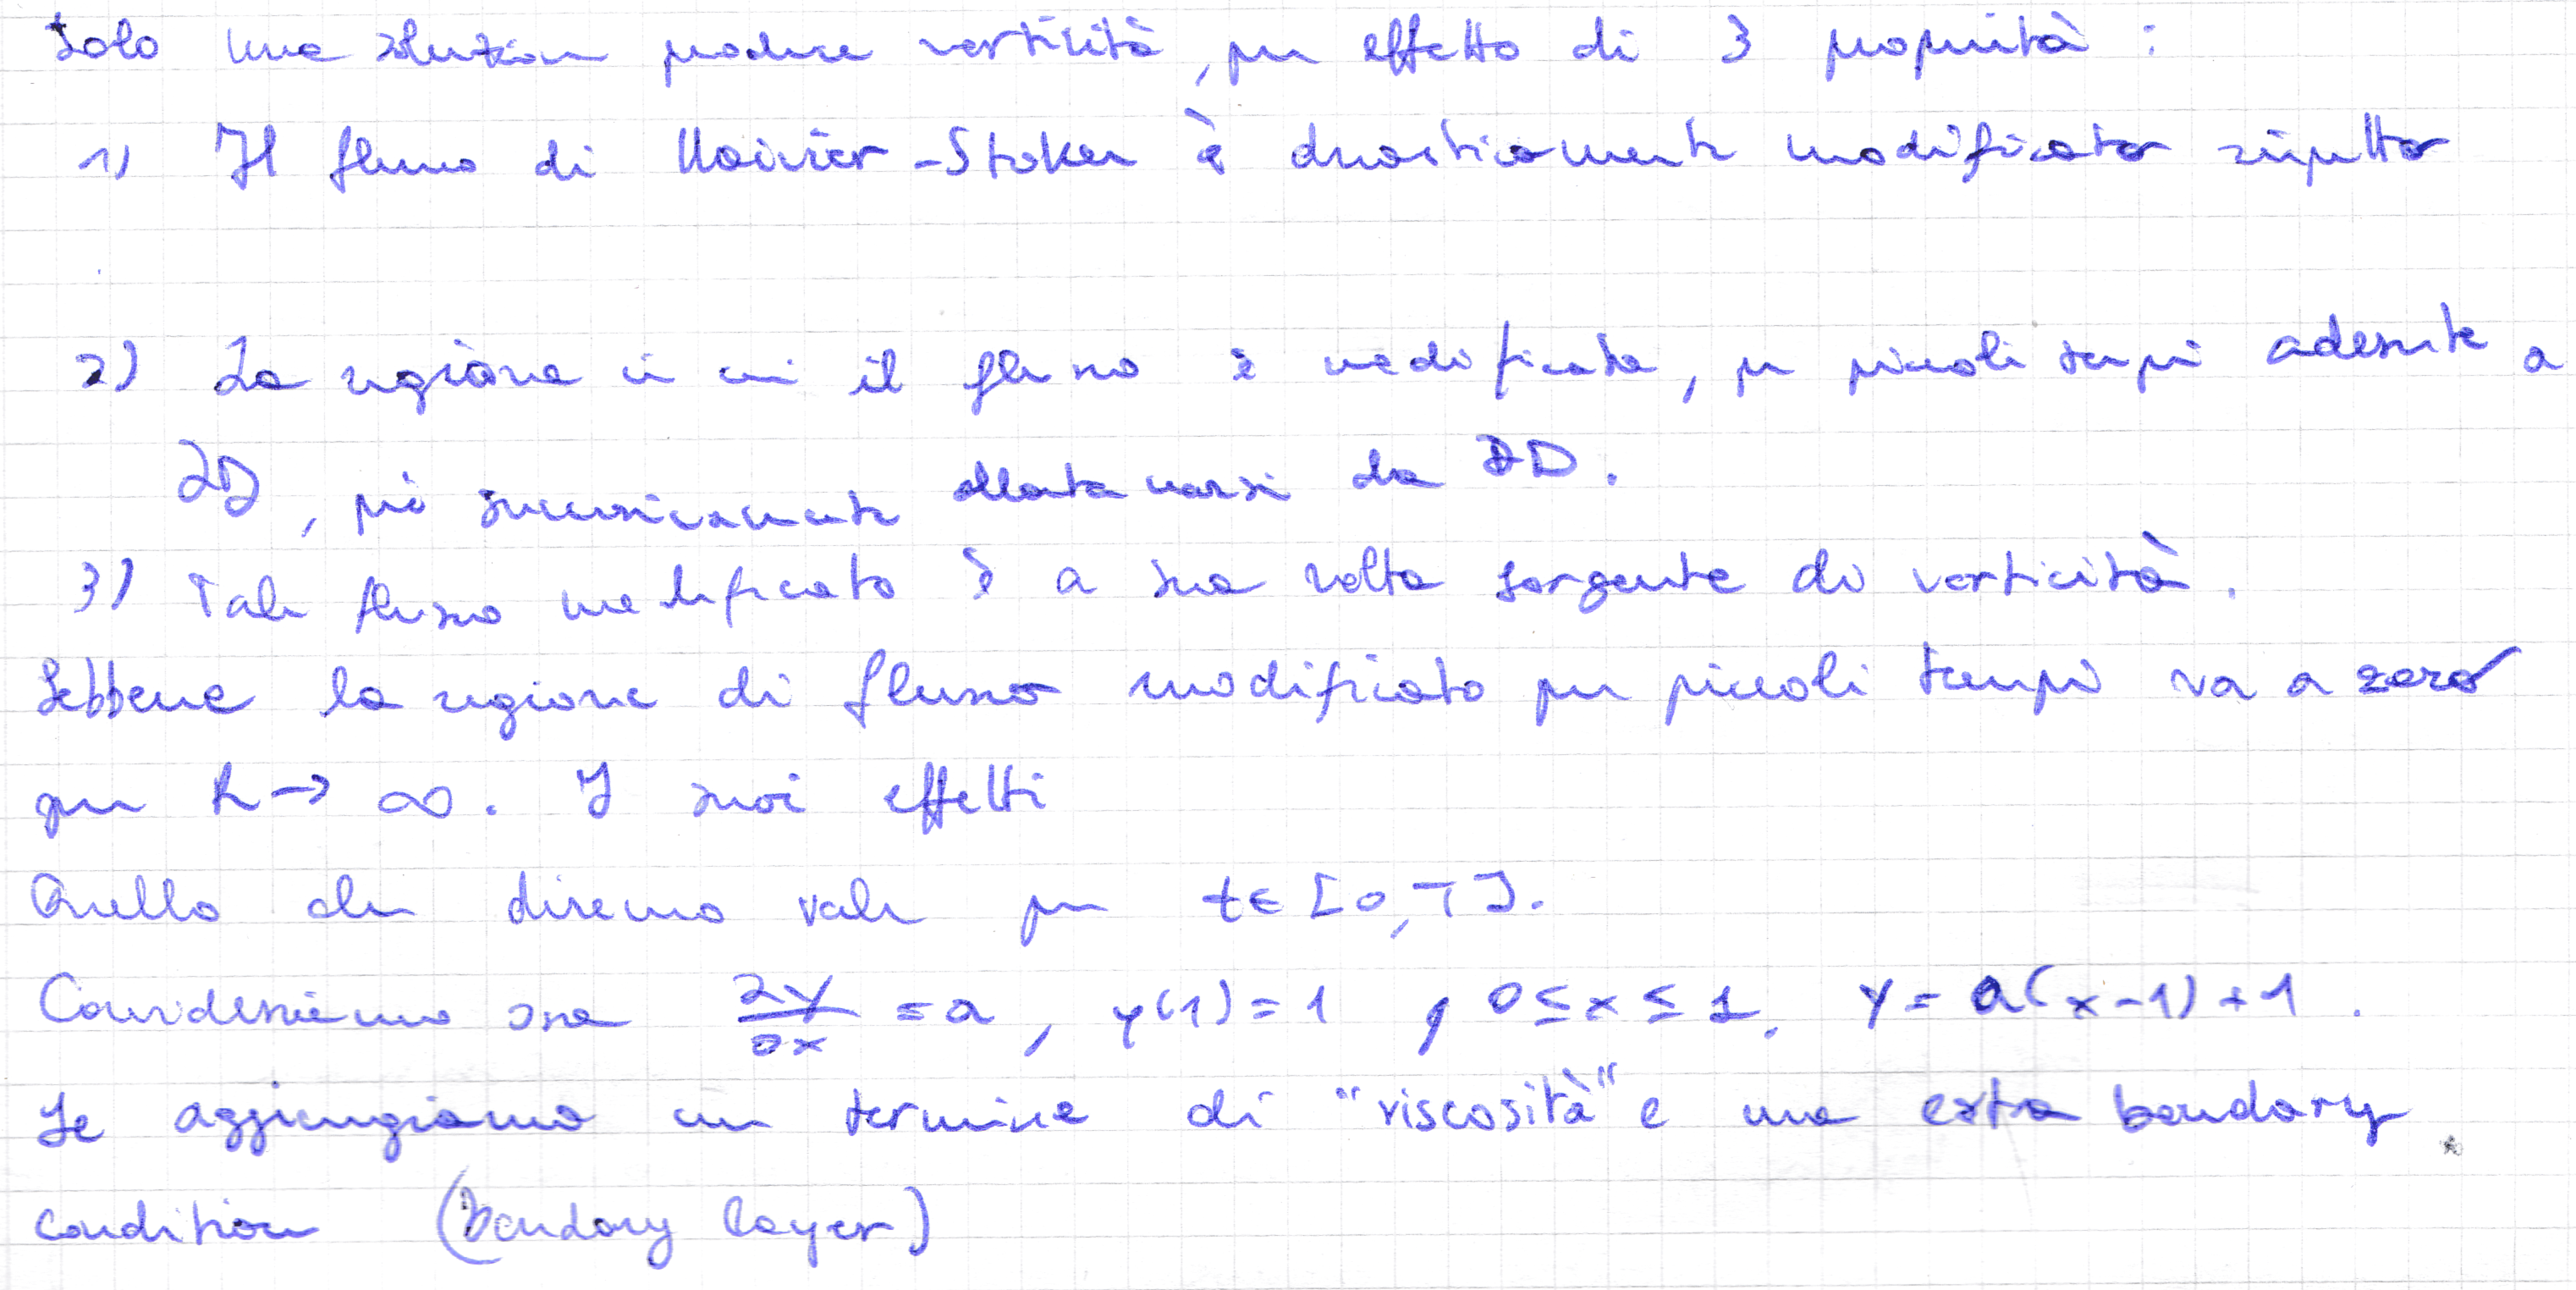 Solo una soluzione produce vorticità, per effetto di 3 proprietà :
1) Il flusso di Navier-Stokes è drasticamente modificato rispetto
2) La regione in cui il flusso è modificato, per piccoli tempi aderente a
∂D, più successivamente allontanarsi da ∂D.
3) Tale flusso modificato è a sua volta sorgente di vorticità.
Sebbene la regione di flusso modificato per piccoli tempi va a zero
per R → ∞. I suoi effetti
Quello che diremo vale per t ∈ [0,T].
Consideriamo ora ∂y/∂x = a, y(1) = 1 , 0 ≤ x ≤ 1. y = a(x-1)+1.
Se aggiungiamo un termine di "viscosità" e una extra boundary
condition (boundary layer)